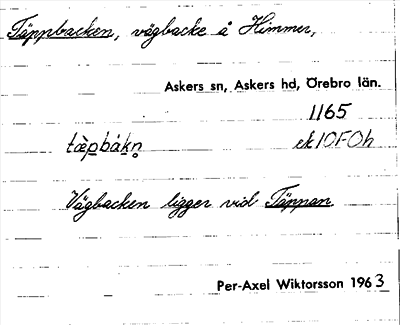 Täppbacken, vägbacke å Himmer,
Askers sn, Askers hd, Örebro län.
1165
tæ̀pbákn̥ ek 10F0h
Vägbacken ligger vid Täppan
Per-Axel Wiktorsson 1963